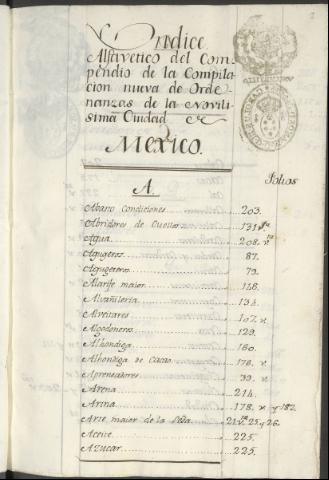 Yndice
Alfavetico del Com
pendio de la Compila
cion nueva de Orde
nanzas de la Novili
sima Ciudad de
Mexico.
Folios
A
Abasto Condiciones 203.
Abridores de Cuellos 131
Agua 208. v
Agugeros 87.
Agugeteros 73.
Alarife maior 146.
Alvañileria 134.
Alveitares 107. v
Algodoneros 129.
Alhondiga 160.
Alhondiga de Cacao 176. v
Aprensadores 39. v
Arena 214.
Arina 178. v y 182.
Arte maior de la Seda 21 v. 25. y 26.
Aceite 225.
Azucar 225.